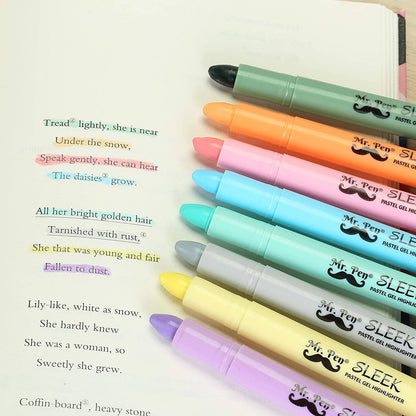 Tread² lightly, she is near
Under the snow,
Speak gently, she can hear
The daisies³ grow.
All her bright golden hair
Tarnished with rust,⁴
She that was young and fair
Fallen to dust.
Lily-like, white as snow,
She hardly knew
She was a woman, so
Sweetly she grew.
Coffin-board⁵, heavy stone
Mr. Pen®
PASTEL GEL HIGHLIGHTER
Mr. Pen® SLEEK
PASTEL GEL HIGHLIGHTER
Mr. Pen® SLEEK
PASTEL GEL HIGHLIGHTER
Mr. Pen® SLEEK
PASTEL GEL HIGHLIGHTER
Mr. Pen® SLEEK
PASTEL GEL HIGHLIGHTER
Mr. Pen® SLEEK
PASTEL GEL HIGHLIGHTER
Mr. Pen® SLEEK
PASTEL GEL HIGHLIGHTER
Mr. Pen® SLEEK